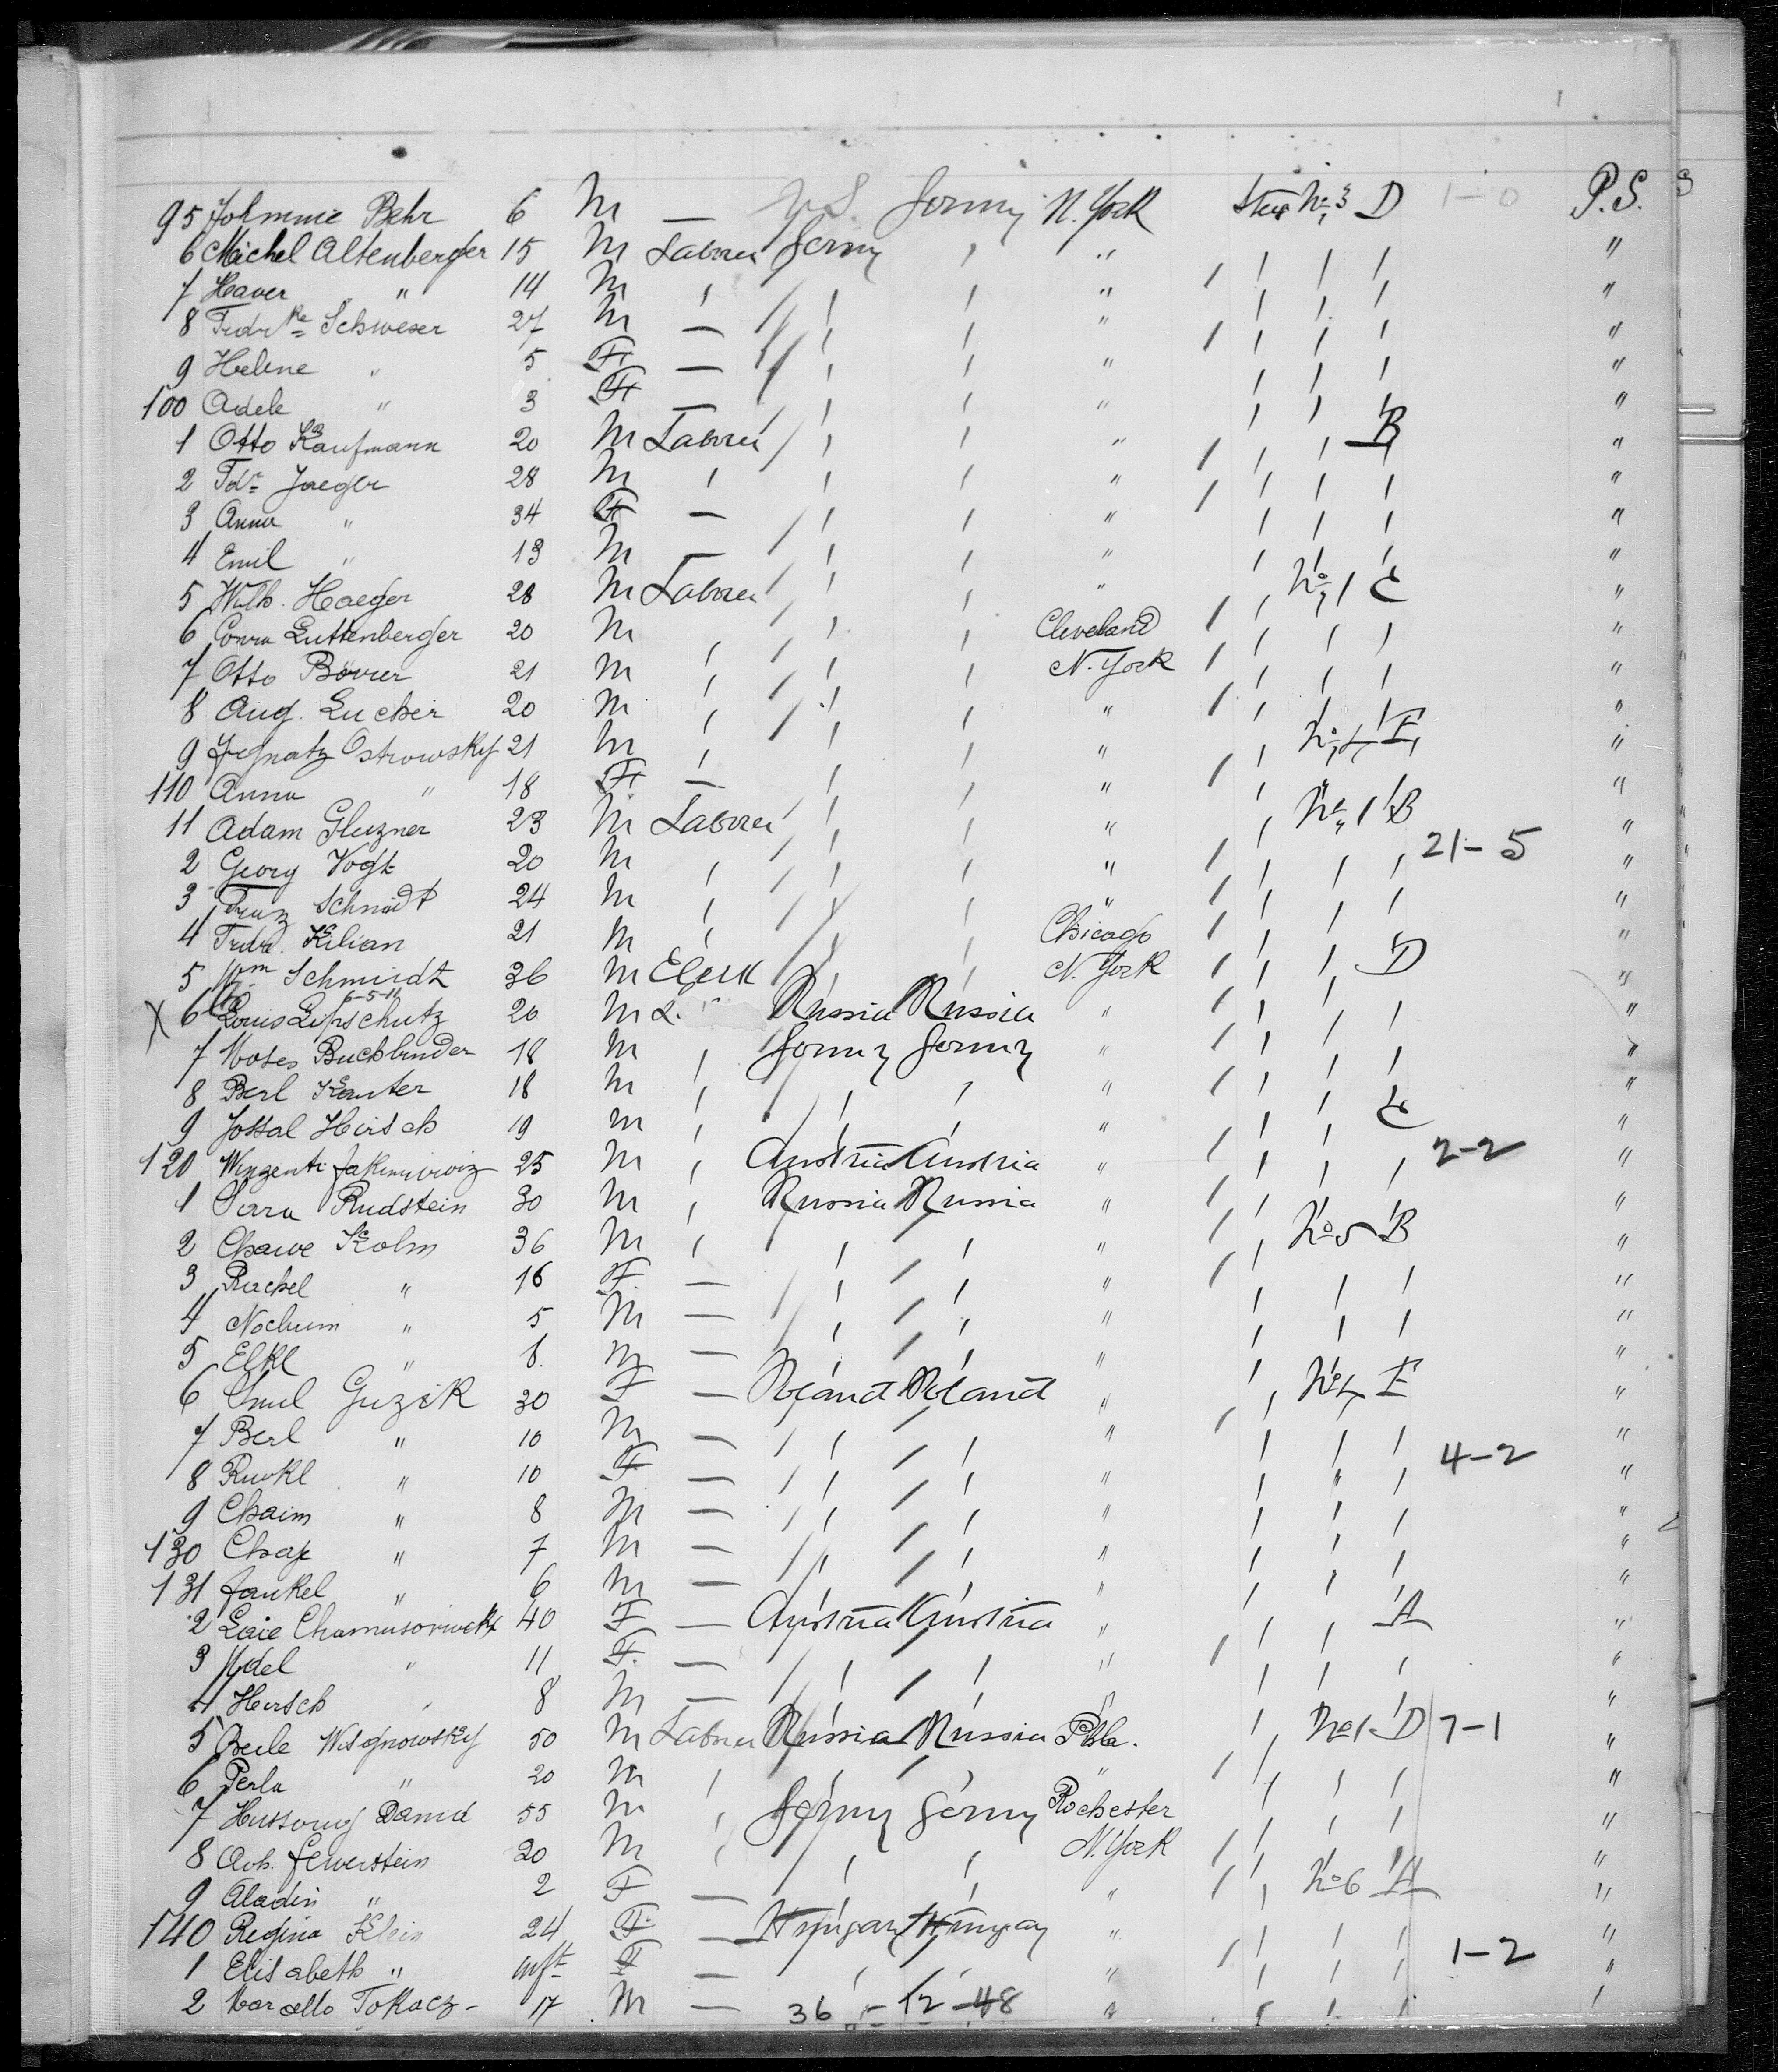 95 Johnnie Behr 6 M — U.S. Germy N. York Stee No 3 D 1-0 P.S.
6 Michel Altenberger 15 M Laborer Germy " "
7 Xaver " 14 M " "
8 Frdrke Schweser 27 M — " "
9 Helene " 5 F — " "
100 Adele " 3 F — " "
1 Otto Kaufmann 20 M Laborer " B "
2 Fdr Jaeger 28 M " "
3 Anna " 34 F — " "
4 Emil " 13 M — " "
5 Wilh. Haeger 28 M Laborer " No 1 C "
6 Conra Luttenberger 20 M Cleveland "
7 Otto Borrer 21 M N. York "
8 Aug. Lucker 20 M " "
9 Ignatz Ostrowsky 21 M " No E "
110 Anna " 18 F — " "
11 Adam Gluzner 23 M Laborer " No 1 B "
2 Georg Vogt 20 M " 21-5 "
3 Franz Schmidt 24 M " "
4 Frdr. Kilian 21 M Chicago "
5 Wm Schmirdt 36 M Clerk N. York D "
X 6 Louis Lipschutz 20 M L. Russia Russia " "
7 Moses Buchbinder 18 M Germy Germy " "
8 Berl Kanter 18 M " "
9 Jossal Hirsch 19 M " C "
120 Winzenti 25 M Austria Austria " 2-2 "
1 Sorra Rudstein 30 M Russia Russia " "
2 Chawe Kolm 36 M " No 5 B "
3 Rachel " 16 F. — " "
4 Nochum " 5 M — " "
5 Elkl " M — " "
6 Guzik 30 F — Poland Poland " No E "
7 Berl " 10 M — " "
8 " 10 F — " 4-2 "
9 Chaim " 8 M — " "
130 " 7 M — " "
131 Jankel " 6 M — " "
2 Laie 40 F — Austria Austria " A "
3 " 11 F. — " "
4 Hersch " 8 M — " "
5 Beile Wisgnowsky 50 M Laborer Russia Russia Phla. No 1 D 7-1 "
6 Perla " 20 M " "
7 Hussong David 55 M Germy Germy Rochester "
8 Feuerstein 20 M N. York "
9 Aladin " 2 F — " No 6 A "
140 Regina Klein 24 F. — Hungary Hungary " "
1 Elisabeth " inft F — " 1-2 "
2 Tokacz - 17 M — 36 - 12 - 48 "